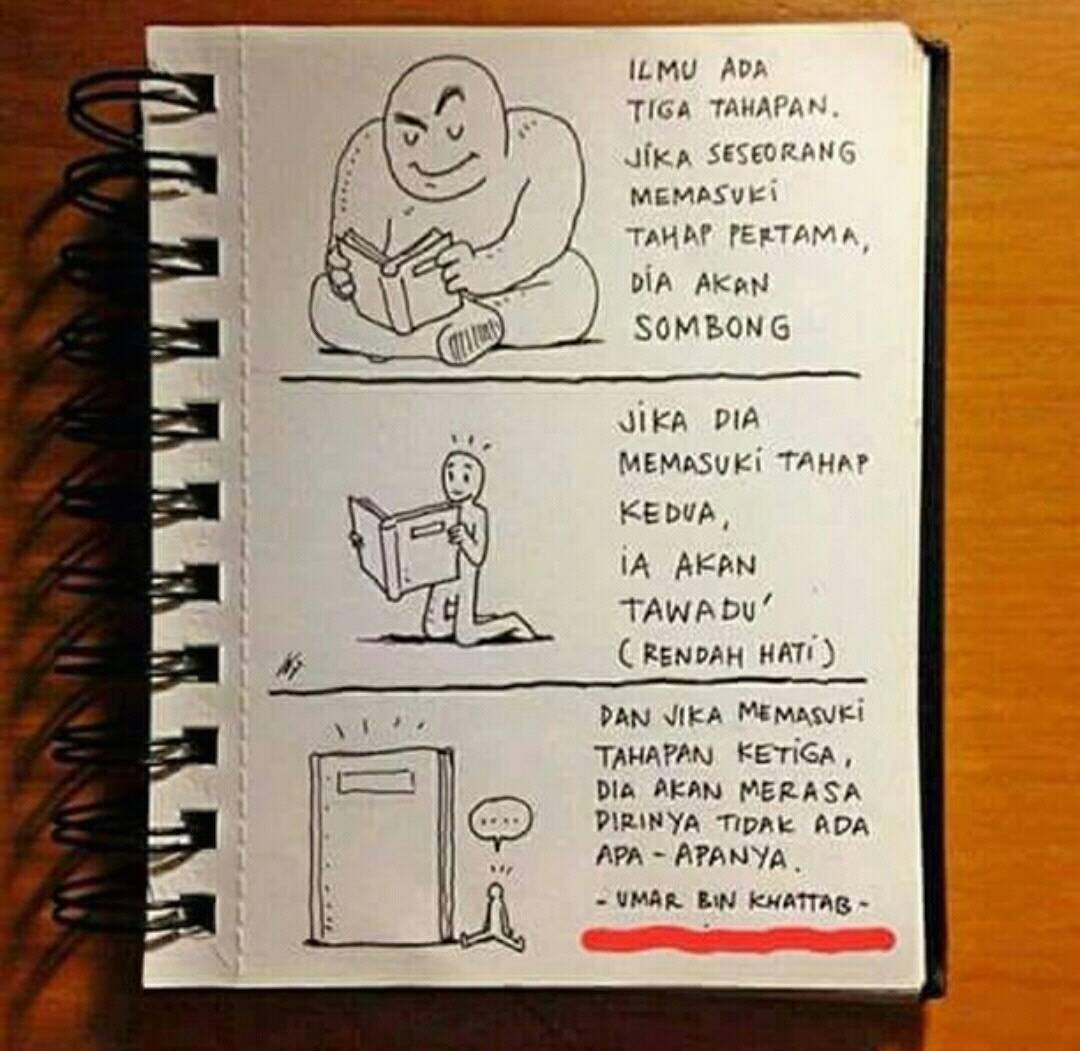 ILMU ADA
TIGA TAHAPAN.
JIKA SESEORANG
MEMASUKI
TAHAP PERTAMA,
DIA AKAN
SOMBONG
JIKA DIA
MEMASUKI TAHAP
KEDUA,
IA AKAN
TAWADU'
(RENDAH HATI)
DAN JIKA MEMASUKI
TAHAPAN KETIGA,
DIA AKAN MERASA
DIRINYA TIDAK ADA
APA-APANYA.
- UMAR BIN KHATTAB -